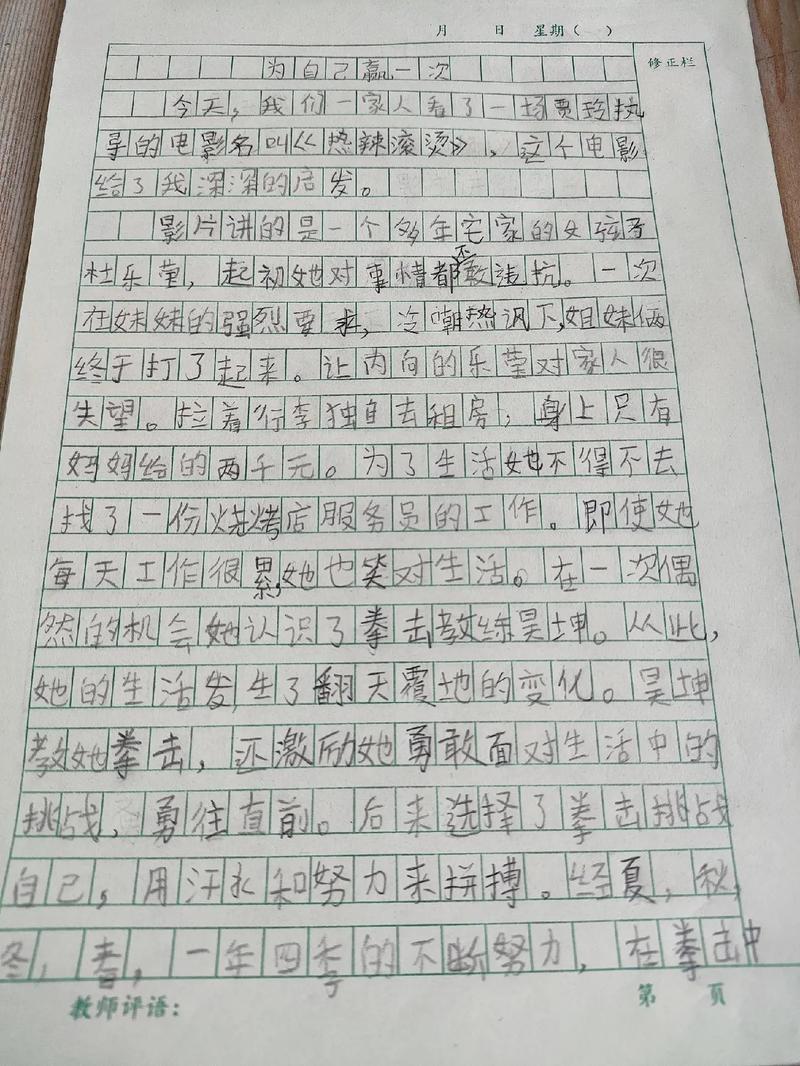 月 日 星期( )
修正栏
为自己赢一次
今天,我们一家人看了一场贾玲执
导的电影名叫《热辣滚烫》,这个电影
给了我深深的启发。
影片讲的是一个多年宅家的女孩子
杜乐莹,起初她对事情都不敢违抗。一次
在妹妹的强烈要求,冷嘲热讽下,姐妹俩
终于打了起来。让内向的乐莹对家人很
失望。拉着行李独自去租房,身上只有
妈妈给的两千元。为了生活她不得不去
找了一份烧烤店服务员的工作。即使她
每天工作很累,她也笑对生活。在一次偶
然的机会她认识了拳击教练昊坤。从此,
她的生活发生了翻天覆地的变化。昊坤
教她拳击,还激励她勇敢面对生活中的
挑战,勇往直前。后来选择了拳击挑战
自己,用汗水和努力来拼搏。经夏,秋,
冬,春,一年四季的不断努力,在拳击中
教师评语:
第 页